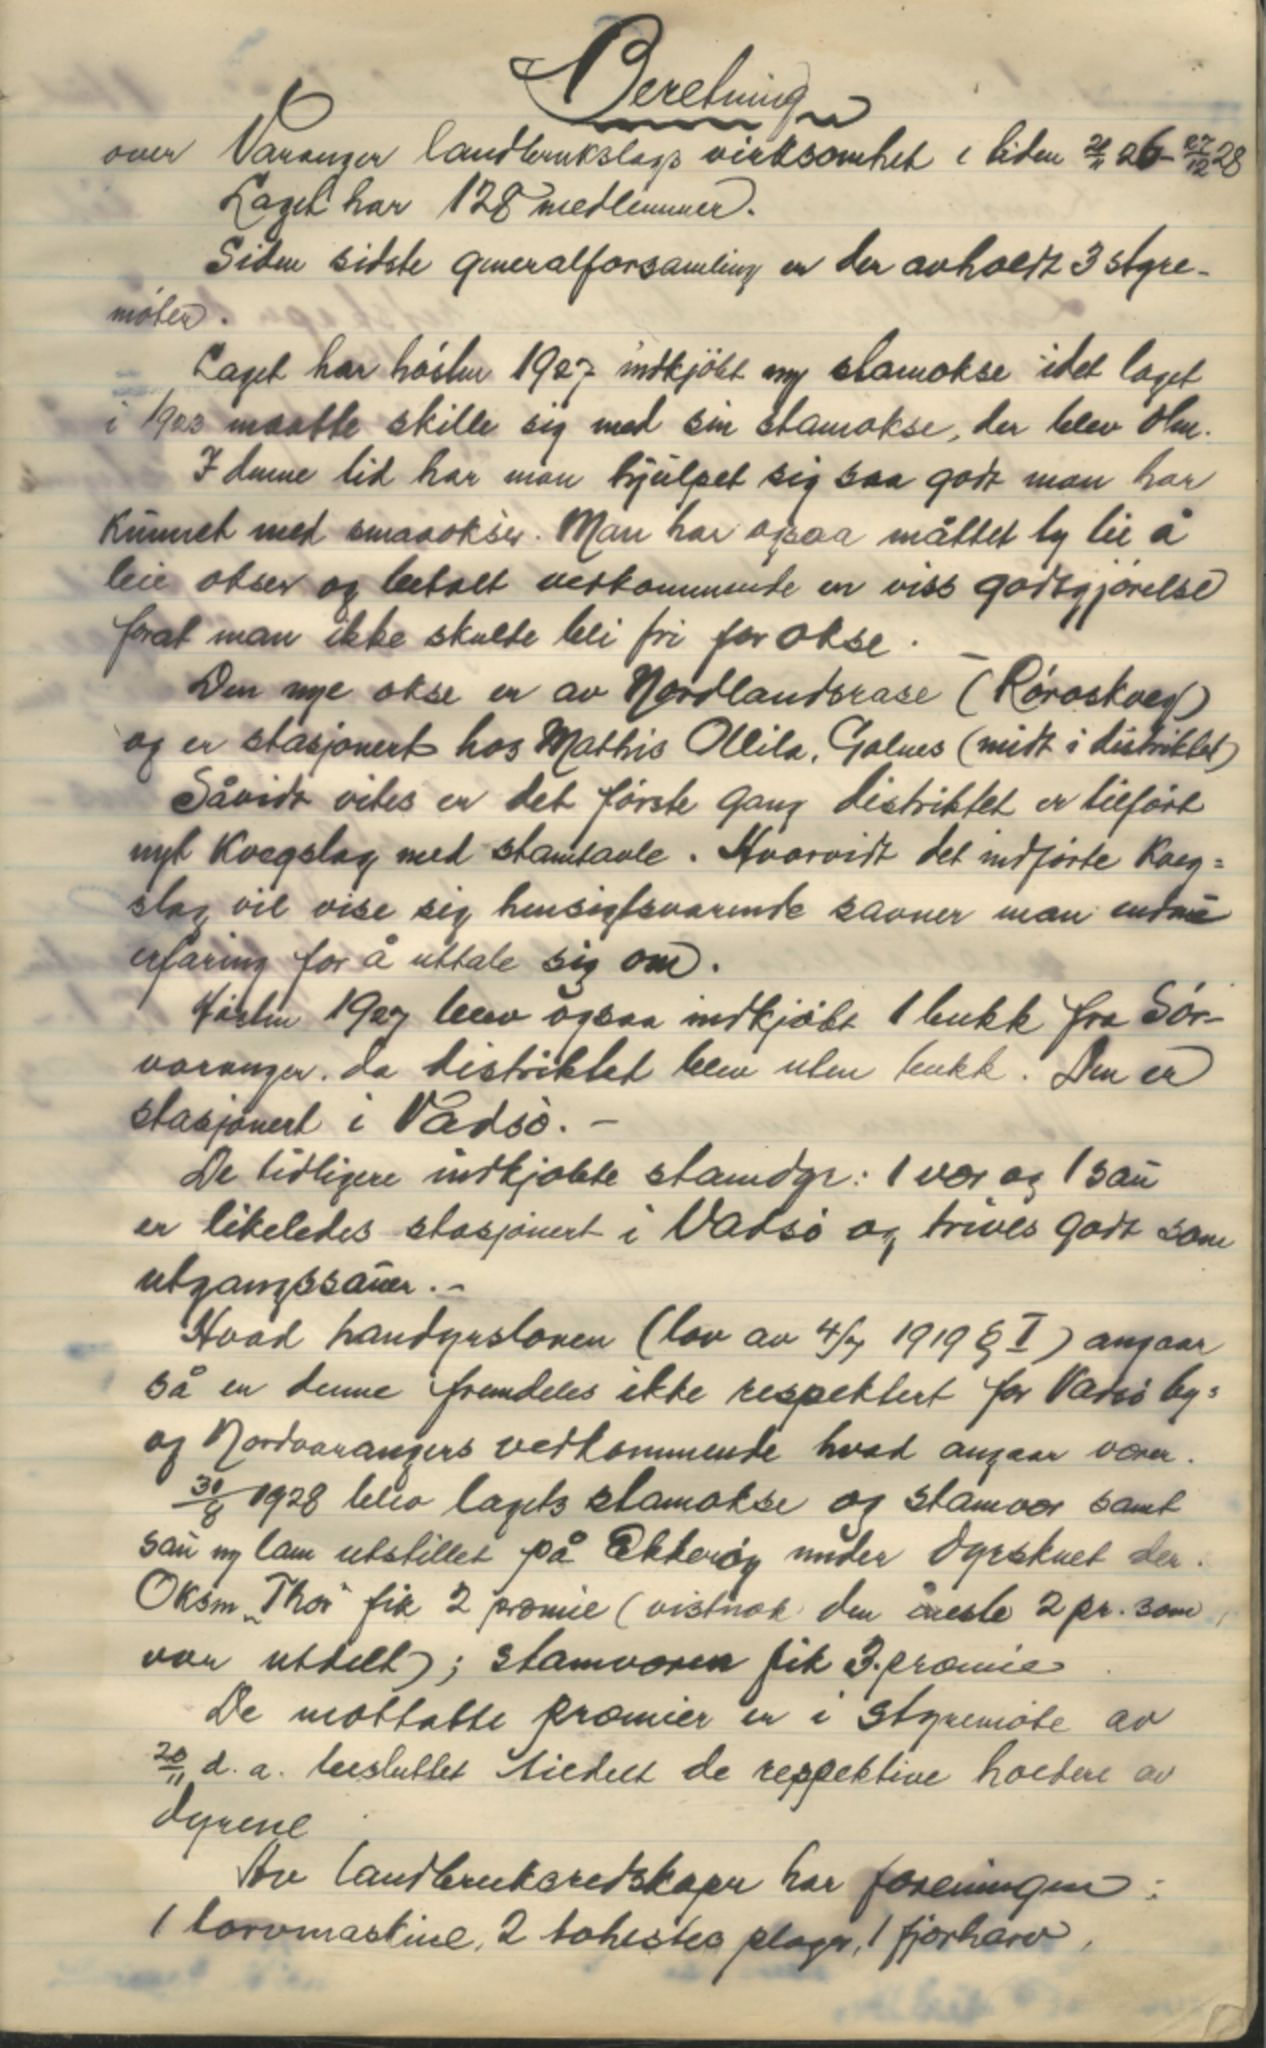 Beretning
over Varanger landbrukslags virksomhet i tiden 20/11 26 - 27/12 28
Laget har 128 medlemmer.
Siden sidste generalforsamling er der avholdt 3 styre-
møter.
Laget har høsten 1927 indkjøbt ny stamokse idet laget
i 1923 maatte skille sig med sin stamokse, der blev olm.
I denne tid har man hjulpet sig saa godt man har
kunnet med smaaokser. Man har ogsaa måttet ty til å
leie okser og betalt vedkommende en viss godtgjørelse
forat man ikke skulde bli fri for okse. -
Den nye okse er av Nordlandsrase (Røroskveg)
og er stasjonert hos Mathis Ollila, Golnes (midt i distriktet)
Såvidt vites er det første gang distriktet er tilført
nyt kvegslag med stamtavle. Hvorvidt det indførte kveg=
slag vil vise sig hensigtsvarende savner man endnu
erfaring for å uttale sig om.
Høsten 1927 blev ogsaa indkjøbt 1 bukk fra Sør-
varanger, da distriktet blev uten bukk. Den er
stasjonert i Vadsø. -
De tidligere indkjøbte stamdyr: 1 vær og 1 sau
er likeledes stasjonert i Vadsø og trives godt som
utgangssauer. -
Hvad handyrsloven (lov av 4/7 1919 § I) angaar
så er denne fremdeles ikke respektert for Vadsø by=
og Nordvarangers vedkommende hvad angaar værer.
30/8 1928 blev lagets stamokse og stamvær samt
sau og lam utstillet på Ekkerøy under dyrskuet der.
Oksen "Thor" fik 2 præmie (vistnok den eneste 2 pr. som
var uttelt); stamværen fik 3. præmie
De mottatte præmier er i styremøte av
20/11 d. a. besluttet tildelt de respektive holdere av
dyrene
Av landbruksredskaper har foreningen:
1 torvmaskine, 2 tohestes ploger, 1 fjørharv,